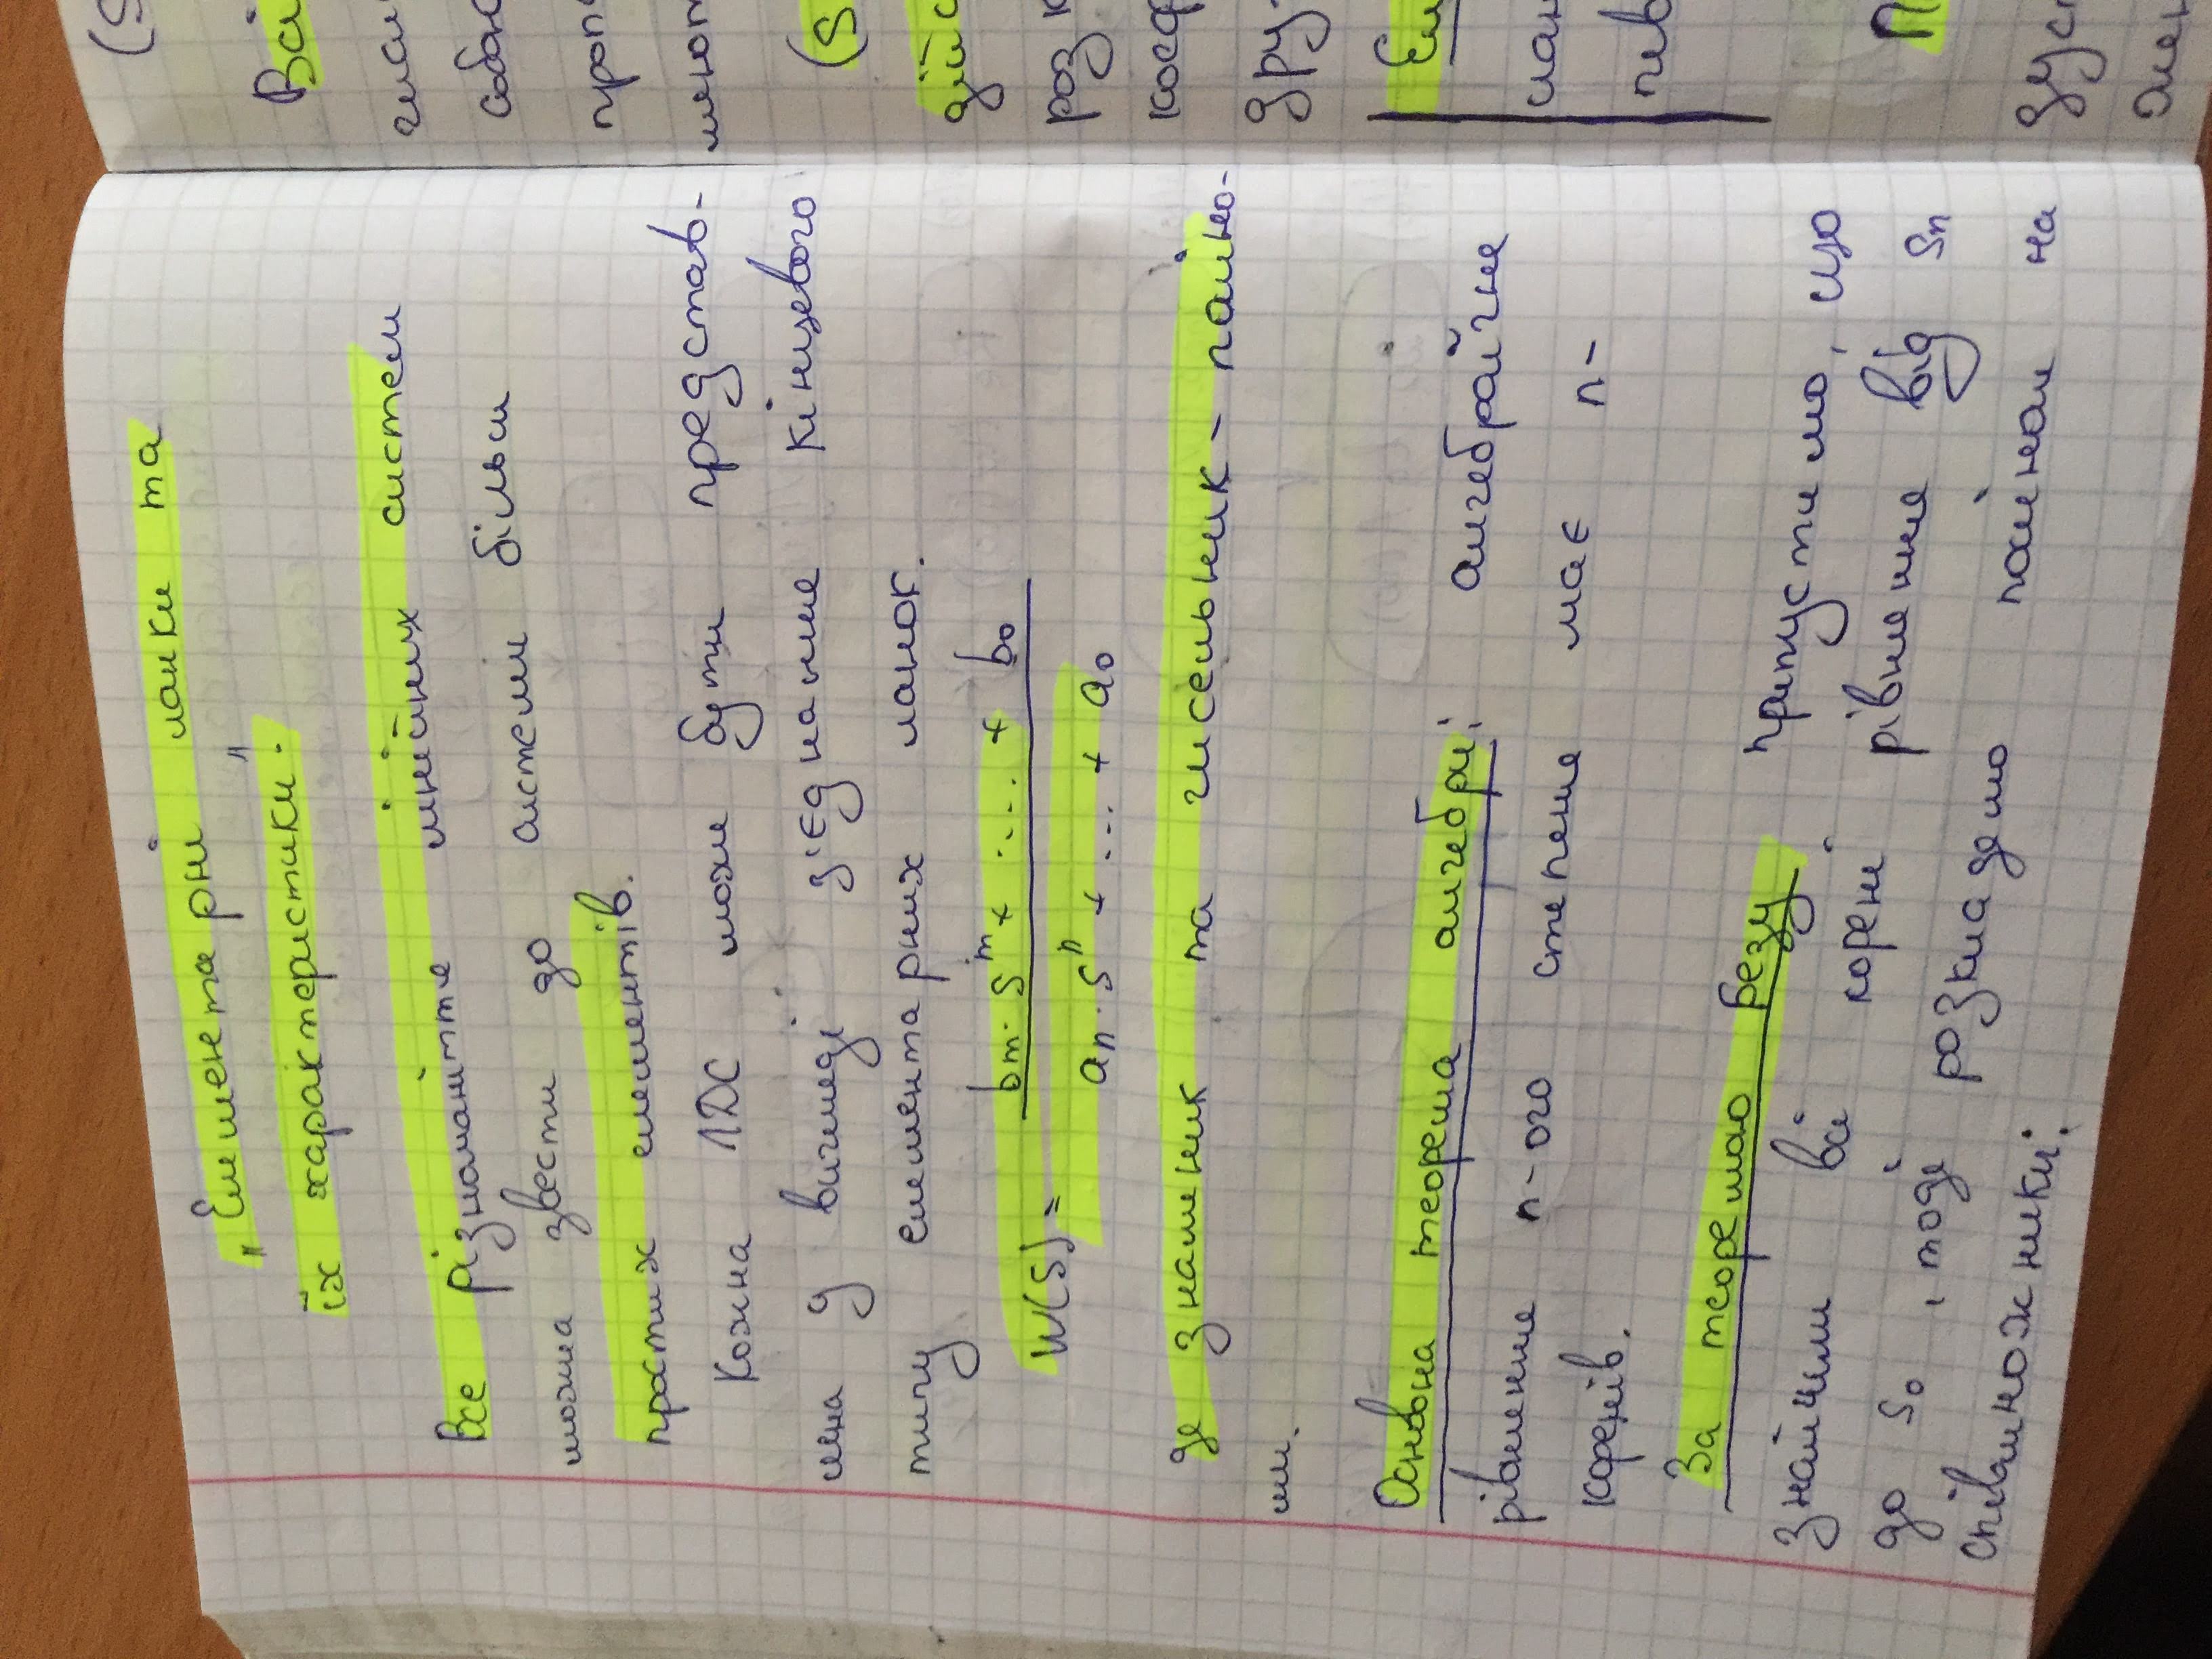 „Елементарні ланки та
їх характеристики."
Все різноманіття лінійних систем
можна звести до системи більш
простих елементів.
Кожна ЛДС може бути представ-
лена у вигляді з'єднання кінцевого
типу елементарних ланок.
W(S) = bm·s^m + ... + b0 / an·s^n + ... + a0
де знаменик та чисельник - поліно-
ми.
Основна теорема алгебри: алгебраїчне
рівняння n-ого степеня має n-
коренів.
За теоремою Безу припустимо, що
знайшли всі корені рівняння від Sn
до S0, тоді розкладемо поліном на
співмножники:
(S
Всі
(S
дру-